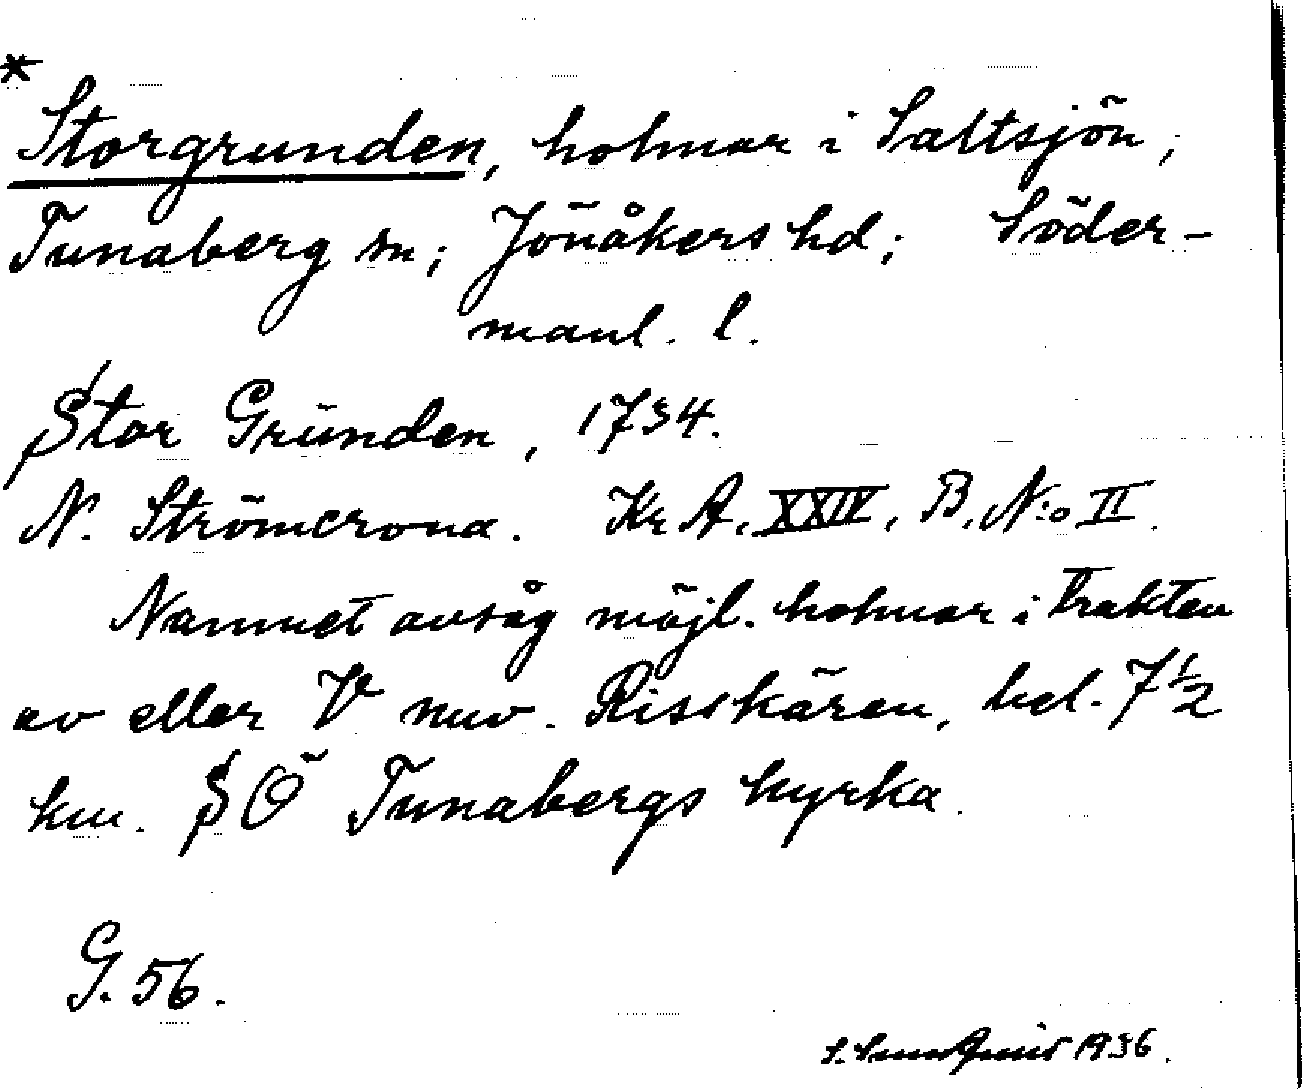 *
Storgrunden, holmar i Saltsjön;
Tunaberg sn; Jönåkers hd; Söder-
manl. l.
Stor Grunden, 1734.
N. Strömcrona. Kr. A. XXIV, B, N:o II.
Namnet avsåg möjl. holmar i trakten
av eller V nuv. Risskären, bel. 7 1/2
km. SÖ Tunabergs kyrka.
G. 56.
1936.